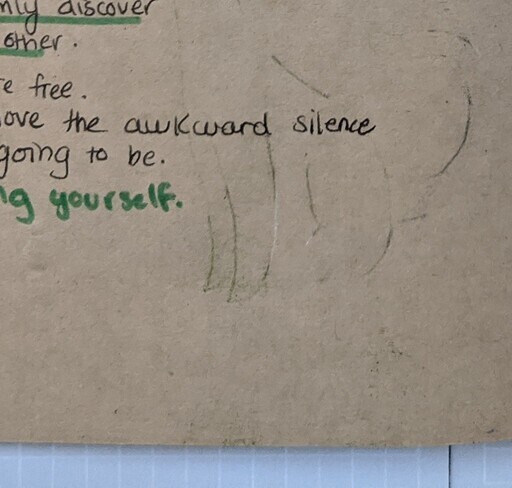 discover
other.
free.
the awkward silence
going to be.
yourself.